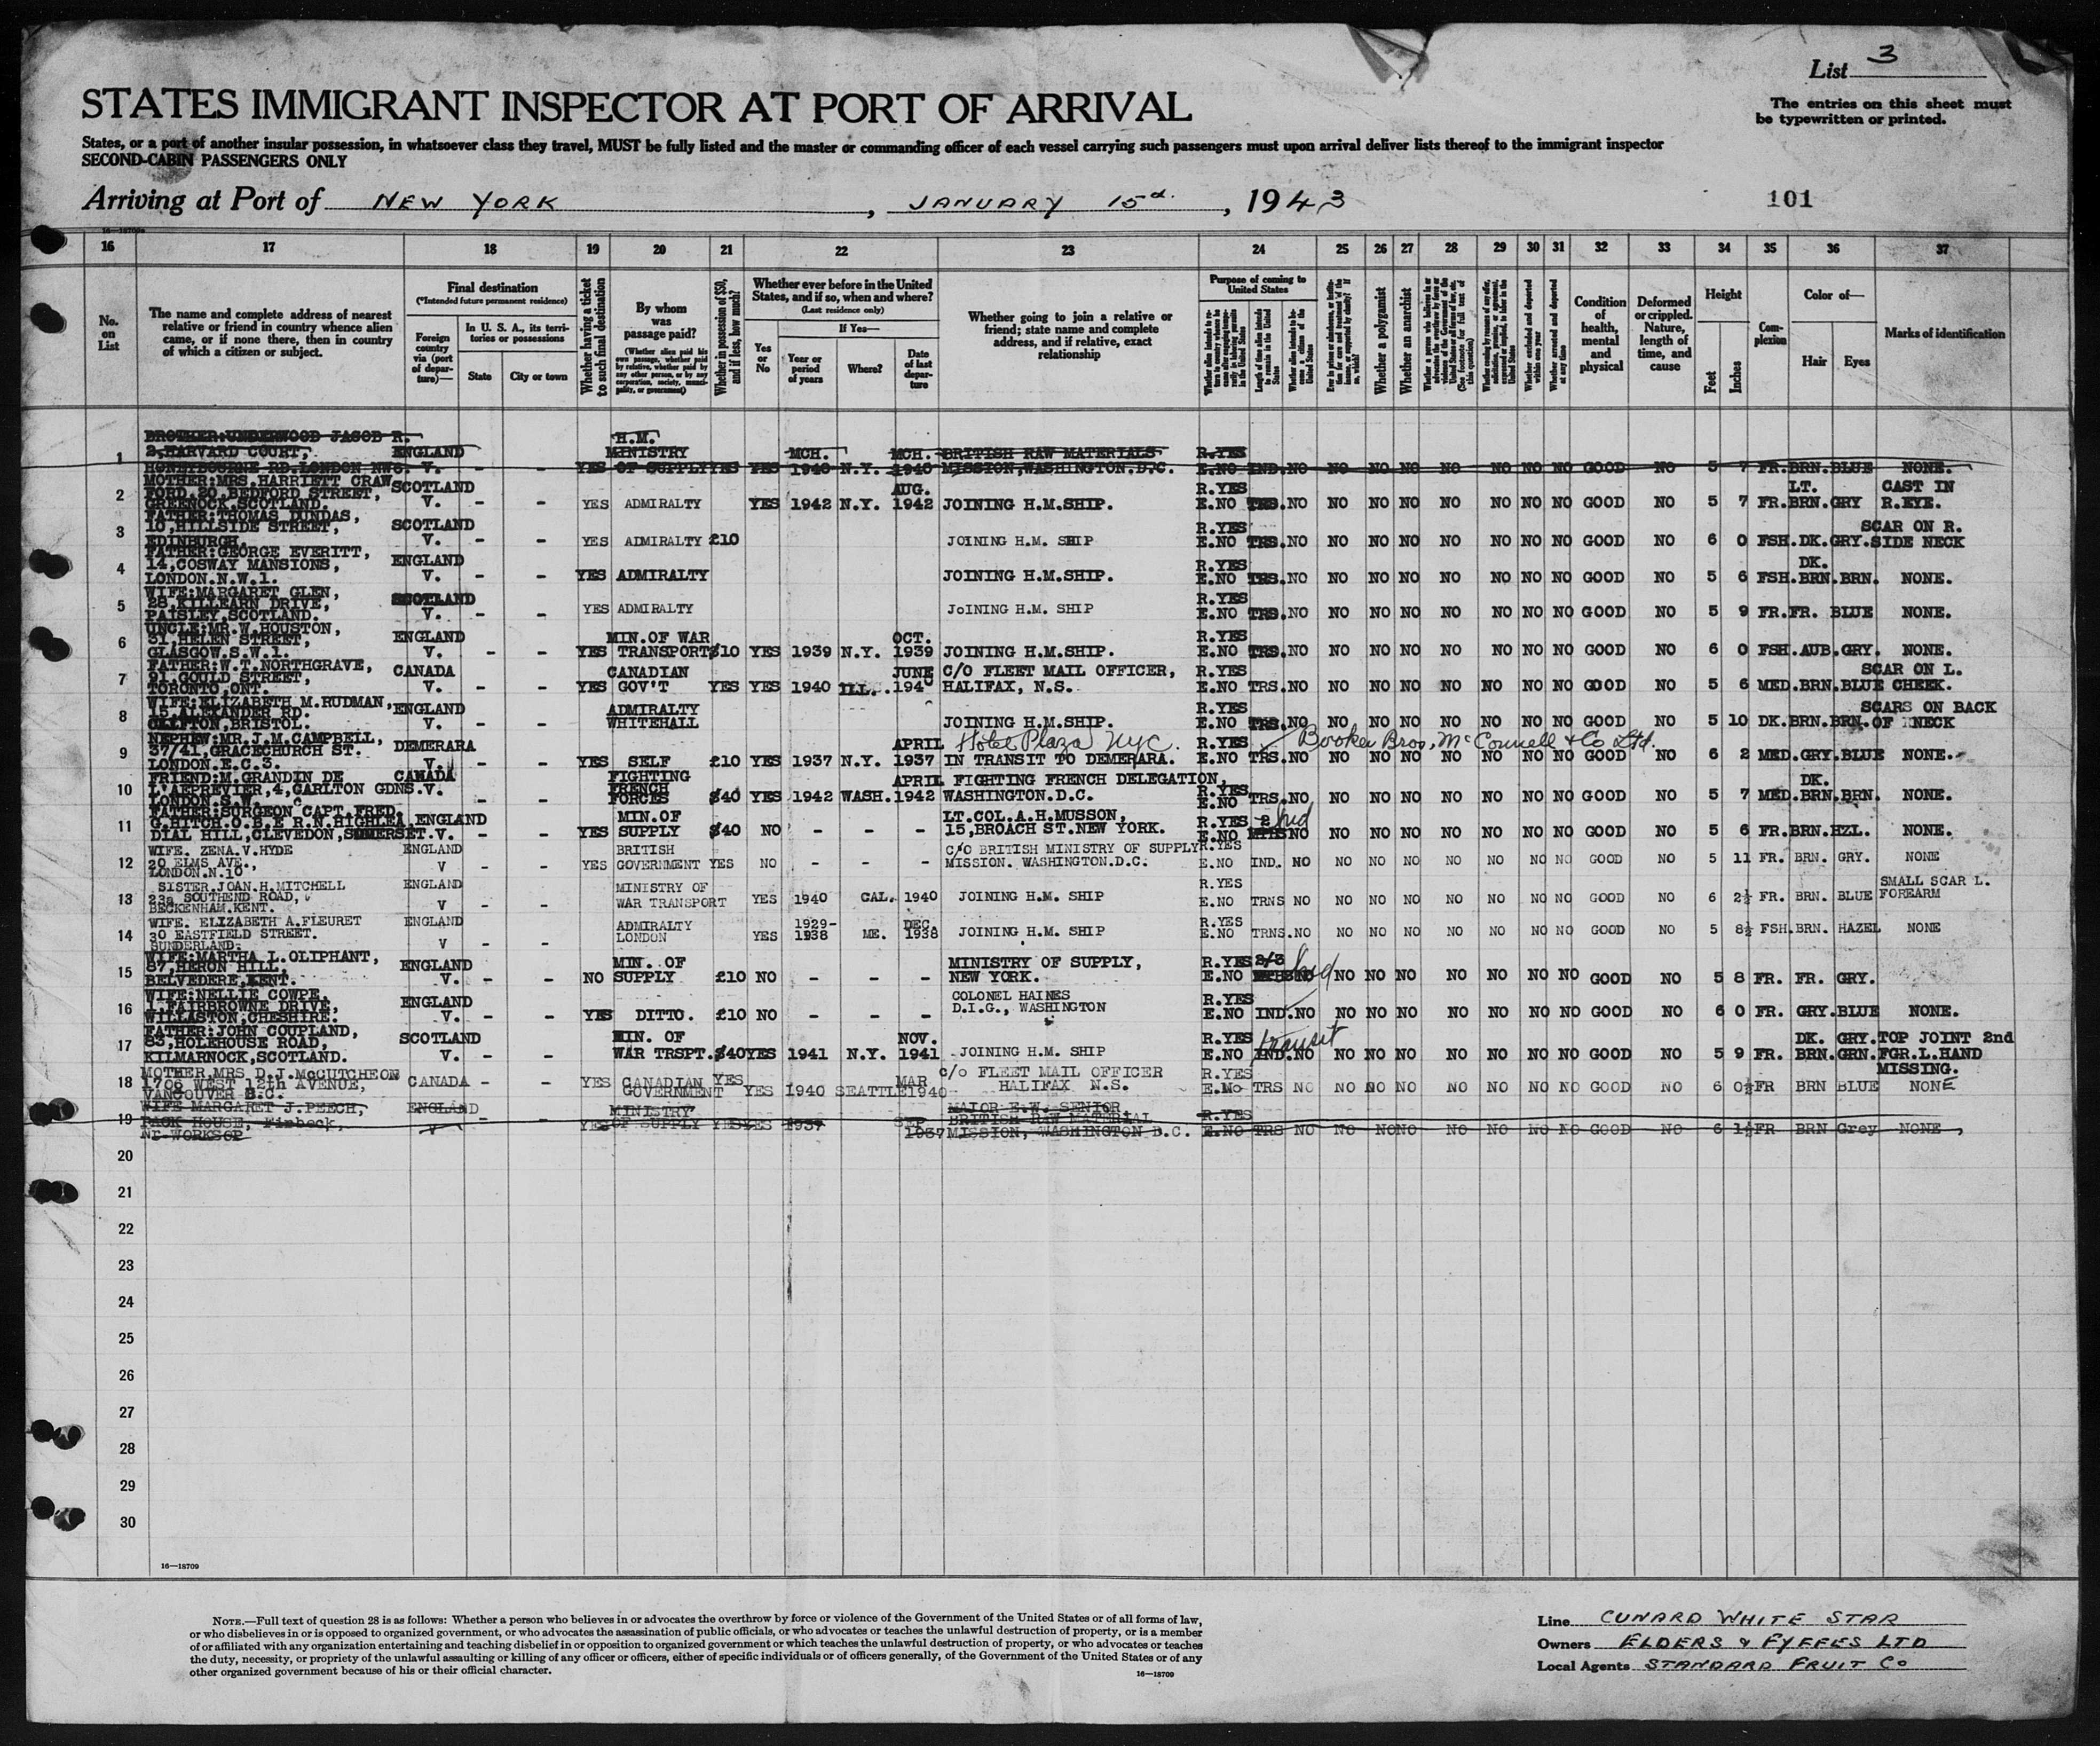 List 3
The entries on this sheet must
be typewritten or printed.
STATES IMMIGRANT INSPECTOR AT PORT OF ARRIVAL
States, or a port of another insular possession, in whatsoever class they travel, MUST be fully listed and the master or commanding officer of each vessel carrying such passengers must upon arrival deliver lists thereof to the immigrant inspector
SECOND-CABIN PASSENGERS ONLY
Arriving at Port of NEW YORK, JANUARY 15d., 1943
101
16 17 18 19 20 21 22 23 24 25 26 27 28 29 30 31 32 33 34 35 36 37
No. on List
The name and complete address of nearest relative or friend in country whence alien came, or if none there, then in country of which a citizen or subject.
Final destination
(*Intended future permanent residence)
Foreign country via (port of departure)—
In U. S. A., its territories or possessions
State
City or town
Whether having a ticket to such final destination
By whom was passage paid?
Whether in possession of $50, and if less, how much?
Whether ever before in the United States, and if so, when and where?
(Last residence only)
Yes or No
If Yes—
Year or period of years
Where?
Date of last departure
Whether going to join a relative or friend; state name and complete address, and if relative, exact relationship
Purpose of coming to United States
Whether a polygamist
Whether an anarchist
Condition of health, mental and physical
Deformed or crippled. Nature, length of time, and cause
Height
Feet
Inches
Complexion
Color of—
Hair
Eyes
Marks of identification
1 BROTHER:UNDERWOOD JASOB R. 2,HARVARD COURT, HONEYBOURNE RD.LONDON NW6. ENGLAND V. - - YES H.M. MINISTRY OF SUPPLY YES YES MCH. 1940 N.Y. MCH. 1940 BRITISH RAW MATERIALS MISSION,WASHINGTON.D.C. R.YES E.NO IND. NO NO NO NO NO NO NO NO GOOD NO 5 7 FR. BRN. BLUE NONE.
2 MOTHER:MRS.HARRIETT CRAW FORD.20,BEDFORD STREET, GREENOCK.SCOTLAND. SCOTLAND V. - - YES ADMIRALTY YES 1942 N.Y. AUG. 1942 JOINING H.M.SHIP. R.YES E.NO TRS. NO NO NO NO NO NO NO NO GOOD NO 5 7 FR. LT. BRN. GRY CAST IN R.EYE.
3 FATHER:THOMAS DUNDAS, 10,HILLSIDE STREET, EDINBURGH. SCOTLAND V. - - YES ADMIRALTY £10 JOINING H.M. SHIP R.YES E.NO TRS. NO NO NO NO NO NO NO NO GOOD NO 6 0 FSH. DK. GRY. SCAR ON R. SIDE NECK
4 FATHER:GEORGE EVERITT, 14,COSWAY MANSIONS, LONDON.N.W.1. ENGLAND V. - - YES ADMIRALTY JOINING H.M.SHIP. R.YES E.NO TRS. NO NO NO NO NO NO NO NO GOOD NO 5 6 FSH. DK. BRN. BRN. NONE.
5 WIFE:MARGARET GLEN, 28,KILLEARN DRIVE, PAISLEY,SCOTLAND. SCOTLAND V. - - YES ADMIRALTY JOINING H.M. SHIP R.YES E.NO TRS. NO NO NO NO NO NO NO NO GOOD NO 5 9 FR. FR. BLUE NONE.
6 UNCLE:MR.W.HOUSTON, 31,HELEN STREET, GLASGOW.S.W.1. ENGLAND V. - - YES MIN.OF WAR TRANSPORT $10 YES 1939 N.Y. OCT. 1939 JOINING H.M.SHIP. R.YES E.NO TRS. NO NO NO NO NO NO NO NO GOOD NO 6 0 FSH. AUB. GRY. NONE.
7 FATHER:W.T.NORTHGRAVE, 91,GOULD STREET, TORONTO,ONT. CANADA V. - - YES CANADIAN GOV'T YES YES 1940 ILL. JUNE 1940 C/O FLEET MAIL OFFICER, HALIFAX, N.S. R.YES E.NO TRS. NO NO NO NO NO NO NO NO GOOD NO 5 6 MED. BRN. BLUE SCAR ON L. CHEEK.
8 WIFE:ELIZABETH M.RUDMAN, 15,ALEXANDER RD. CLIFTON,BRISTOL. ENGLAND V. - - ADMIRALTY WHITEHALL JOINING H.M.SHIP. R.YES E.NO TRS. NO NO NO NO NO NO NO NO GOOD NO 5 10 DK. BRN. BRN. SCARS ON BACK OF NECK
9 NEPHEW:MR.J.M.CAMPBELL, 37/41,GRACECHURCH ST. LONDON.E.C.3. DEMERARA V. - - YES SELF £10 YES 1937 N.Y. APRIL 1937 Hotel Plaza NYC. IN TRANSIT TO DEMERARA. R.YES E.NO TRS. Booker Bros, McConnell & Co Ltd. NO NO NO NO NO NO NO NO GOOD NO 6 2 MED. GRY. BLUE NONE.
10 FRIEND:M.GRANDIN DE L'AEPREVIER,4,CARLTON GDNS. LONDON.S.W. CANADA V. - - FIGHTING FRENCH FORCES $40 YES 1942 WASH. APRIL 1942 FIGHTING FRENCH DELEGATION, WASHINGTON.D.C. R.YES E.NO TRS. NO NO NO NO NO NO NO NO GOOD NO 5 7 MED. DK. BRN. BRN. NONE.
11 FATHER:SURGEON CAPT.FRED. G.HITCH.O.B.E R.N.HIGHLEA, DIAL HILL,CLEVEDON,SOMERSET. ENGLAND V. - - YES MIN.OF SUPPLY $40 NO - - - LT.COL.A.H.MUSSON, 15,BROACH ST.NEW YORK. R.YES E.NO 2 MTHS Ind NO NO NO NO NO NO NO NO GOOD NO 5 6 FR. BRN. HZL. NONE.
12 WIFE. ZENA.V.HYDE 20 ELMS AVE., LONDON.N.10 ENGLAND V - - YES BRITISH GOVERNMENT YES NO - - - C/O BRITISH MINISTRY OF SUPPLY MISSION. WASHINGTON.D.C. R.YES E.NO IND. NO NO NO NO NO NO NO NO GOOD NO 5 11 FR. BRN. GRY. NONE
13 SISTER.JOAN.H.MITCHELL 23a SOUTHEND ROAD, BECKENHAM.KENT. ENGLAND V - - MINISTRY OF WAR TRANSPORT YES 1940 CAL. 1940 JOINING H.M. SHIP R.YES E.NO TRNS NO NO NO NO NO NO NO NO GOOD NO 6 2½ FR. BRN. BLUE SMALL SCAR L. FOREARM
14 WIFE. ELIZABETH A.FLEURET 30 EASTFIELD STREET. SUNDERLAND. ENGLAND V - - ADMIRALTY LONDON YES 1929-1938 ME. DEC. 1938 JOINING H.M. SHIP R.YES E.NO TRNS. NO NO NO NO NO NO NO NO GOOD NO 5 8½ FSH. BRN. HAZEL NONE
15 WIFE:MARTHA L.OLIPHANT, 87,HERON HILL, BELVEDERE,KENT. ENGLAND V. - - NO MIN. OF SUPPLY £10 NO - - - MINISTRY OF SUPPLY, NEW YORK. R.YES E.NO 2/3 MTHS Ind NO NO NO NO NO NO NO NO GOOD NO 5 8 FR. FR. GRY.
16 WIFE:NELLIE COWPE, 1,FAIRBROWNE DRIVE, WILLASTON,CHESHIRE. ENGLAND V. - - YES DITTO. £10 NO - - - COLONEL HAINES D.I.G., WASHINGTON R.YES E.NO IND. NO NO NO NO NO NO NO NO GOOD NO 6 0 FR. GRY. BLUE NONE.
17 FATHER:JOHN COUPLAND, 83,HOLEHOUSE ROAD, KILMARNOCK,SCOTLAND. SCOTLAND V. - - MIN. OF WAR TRSPT. $40 YES 1941 N.Y. NOV. 1941 JOINING H.M. SHIP R.YES E.NO IND. transit NO NO NO NO NO NO NO NO GOOD NO 5 9 FR. DK. BRN. GRY. GRN. TOP JOINT 2nd FGR.L.HAND MISSING.
18 MOTHER,MRS D.J.McCUTCHEON 1706 WEST 12th AVENUE, VANCOUVER B.C. CANADA - - YES CANADIAN GOVERNMENT YES YES 1940 SEATTLE MAR 1940 c/o FLEET MAIL OFFICER HALIFAX N.S. R.YES E.No TRS NO NO NO NO NO NO NO NO GOOD NO 6 0½ FR BRN BLUE NONE
19 WIFE MARGARET J.PEECH, PACK HOUSE, Firbeck, Nr WORKSOP ENGLAND V - - YES MINISTRY OF SUPPLY YES YES 1937 SEP 1937 MAJOR E.W. SENIOR BRITISH RAW MATERIAL MISSION, WASHINGTON D.C. R.YES E.NO TRS NO NO NO NO NO NO NO NO GOOD NO 6 1½ FR BRN Grey NONE
20
21
22
23
24
25
26
27
28
29
30
16—18709
NOTE.—Full text of question 28 is as follows: Whether a person who believes in or advocates the overthrow by force or violence of the Government of the United States or of all forms of law,
or who disbelieves in or is opposed to organized government, or who advocates the assassination of public officials, or who advocates or teaches the unlawful destruction of property, or is a member
of or affiliated with any organization entertaining and teaching disbelief in or opposition to organized government or which teaches the unlawful destruction of property, or who advocates or teaches
the duty, necessity, or propriety of the unlawful assaulting or killing of any officer or officers, either of specific individuals or of officers generally, of the Government of the United States or of any
other organized government because of his or their official character.
16—18709
Line CUNARD WHITE STAR
Owners ELDERS & FYFFES LTD
Local Agents STANDARD FRUIT Co